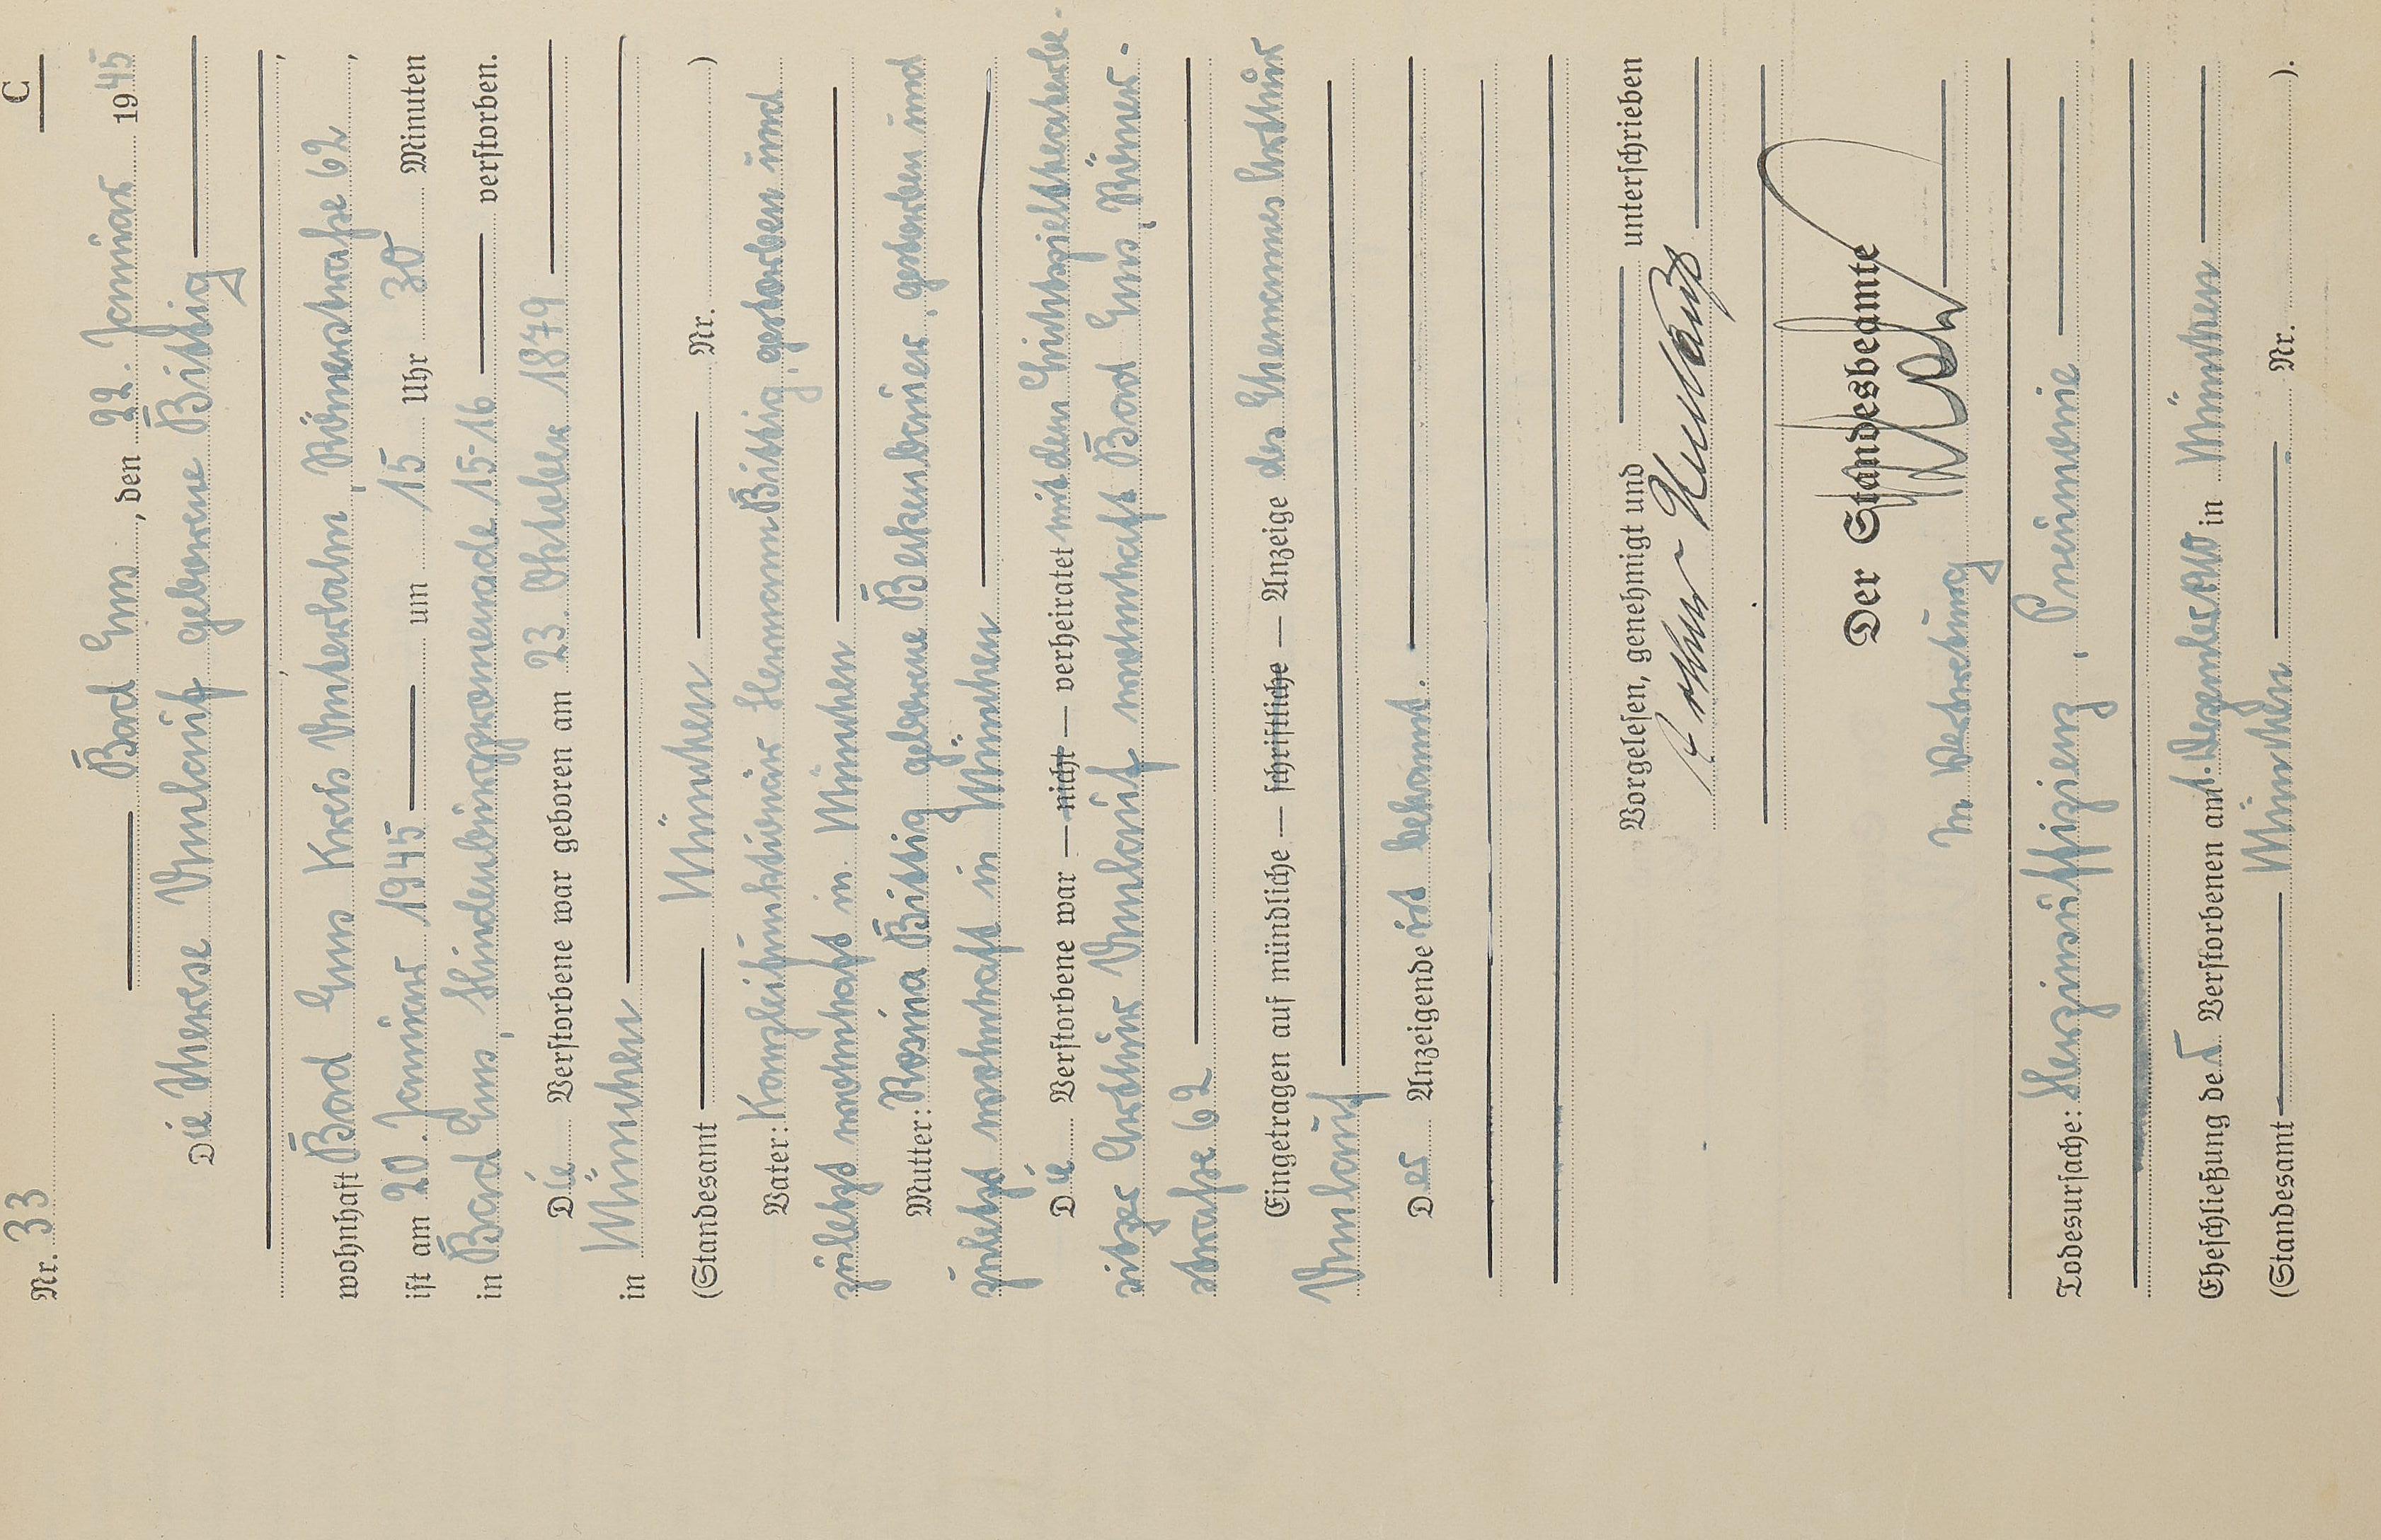 C
Nr. 33
Bad Ems, den 22. Januar 1945
Die Therese Umlauf geborene Bittig
wohnhaft Bad Ems Kreis Unterlahn, Römerstraße 62,
ist am 20. Januar 1945 um 15 Uhr 30 Minuten
in Bad Ems, Hindenburgpromenade 15-16 verstorben.
Die Verstorbene war geboren am 23. Oktober 1879
in München
(Standesamt München Nr. )
Vater: Kanzleifunktionär Hermann Bittig, gestorben und
zuletzt wohnhaft in München
Mutter: Rosina Bittig geborene Berkenbauer, gestorben und
zuletzt wohnhaft in München
Die Verstorbene war — nicht — verheiratet mit dem Lichtspieltheaterbe-
sitzer Arthur Umlauf wohnhaft Bad Ems, Römer-
straße 62
Eingetragen auf mündliche — schriftliche — Anzeige des Ehemannes Arthur
Umlauf
Der Anzeigende ist bekannt.
Vorgelesen, genehmigt und unterschrieben
Arthur Umlauf
Der Standesbeamte
In Vertretung
Todesursache: Herzinsuffizienz, Pneumonie
Eheschließung der Verstorbenen am 1. Dezember in München
(Standesamt München Nr. ).